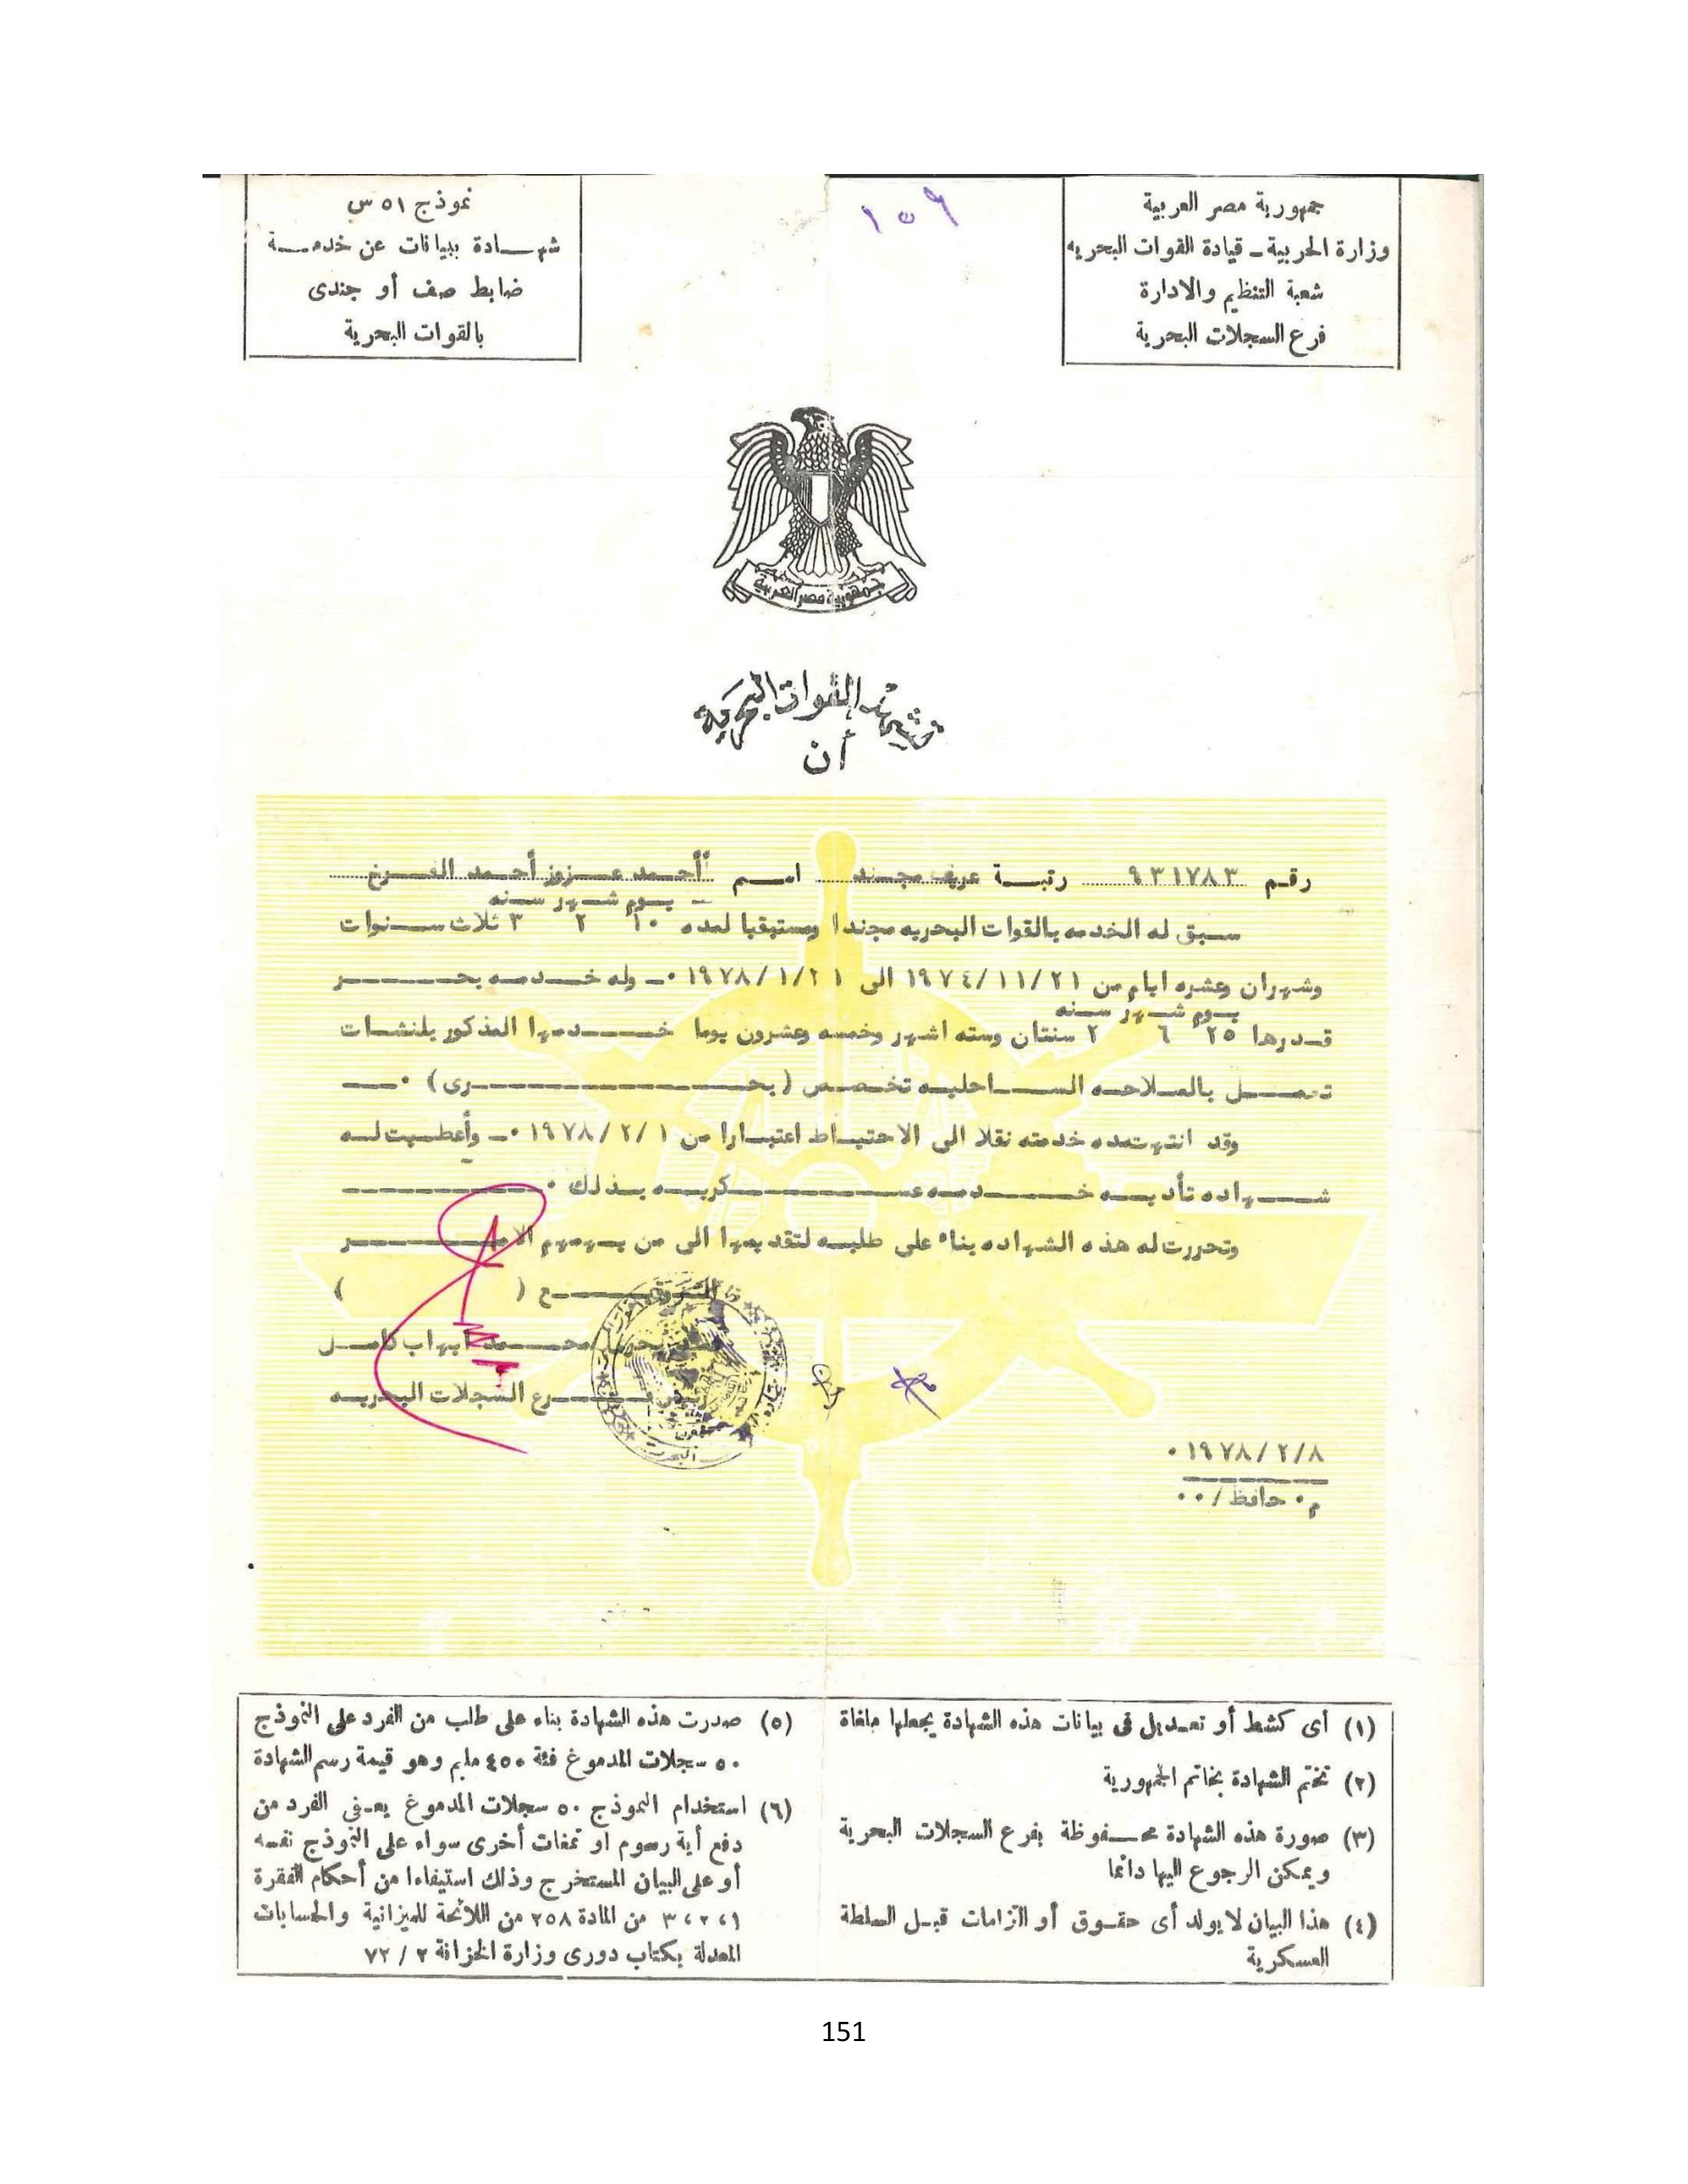 جمهورية مصر العربية
وزارة الحربية ـ قيادة القوات البحريه
شعبة التنظيم والادارة
فرع السجلات البحرية
١٥٦
نموذج ٥١ س
شهـــادة ببيانات عن خدمـــة
ضابط صف أو جندى
بالقوات البحرية
جمهورية مصر العربية
تشهد القوات البحرية
أن
رقم ٩٣١٧٨٣ رتبــة عريف مجـند اســم أحـمد عــزوز أحـمد الفــرخ
ـ يــوم شــهر ســنه
ســبق له الخدمه بالقوات البحريه مجندا ومستبقيا لمده ١٠ ٢ ٣ ثلاث ســنوات
وشهران وعشره ايام من ١٩٧٤/١١/٢١ الى ١٩٧٨/١/٢١ ٠ـ وله خــدمــه بحــــر
يــوم شــهر ســنه
قــدرها ٢٥ ٦ ٢ سنتان وسته اشهر وخمسه وعشرون يوما خــــدمها المذكور بلنشــات
تعمــــل بالملاحــه الســــاحليــه تخــصص (بحــــــــــرى) ٠ــــ
وقد انتهت مده خدمته نقلا الى الاحتيــاط اعتبــارا من ١٩٧٨/٢/١ ٠ـ وأعطــيت لــه
شــــهاده تأديــــه خــــــدمــه عســــــــــكريــــه بــذلك ٠
وتحررت له هذه الشهاده بناء على طلبــه لتقديمها الى من يــهمهم الامــــــر
التوقيــــــع ( )
محــــمد ايهاب كامــــل
رئيس فــــــــرع السجلات البحريــه
١٩٧٨/٢/٨ ٠
م٠ حافظ/٠٠
(١) أى كشط أو تعـديل فى بيانات هذه الشهادة يجعلها ملغاة
(٢) تختم الشهادة بخاتم الجمهورية
(٣) صورة هذه الشهادة محــفوظة بفرع السجلات البحرية
ويمكن الرجوع اليها دائما
(٤) هذا البيان لا يولد أى حقـوق أو التزامات قبـل السلطة
العسكرية
(٥) صدرت هذه الشهادة بناء على طلب من الفرد على النموذج
٥٠ سجلات المدموغ فئة ٤٥٠ مليم وهو قيمة رسم الشهادة
(٦) استخدام النموذج ٥٠ سجلات المدموغ يعـفى الفرد من
دفع أية رسوم او تمغات أخرى سواء على النموذج نفسه
أو على البيان المستخرج وذلك استيفاءا من أحكام الفقرة
١، ٢، ٣ من المادة ٢٥٨ من اللائحة للميزانية والحسابات
المعدلة بكتاب دورى وزارة الخزانة ٢ / ٧٢
151